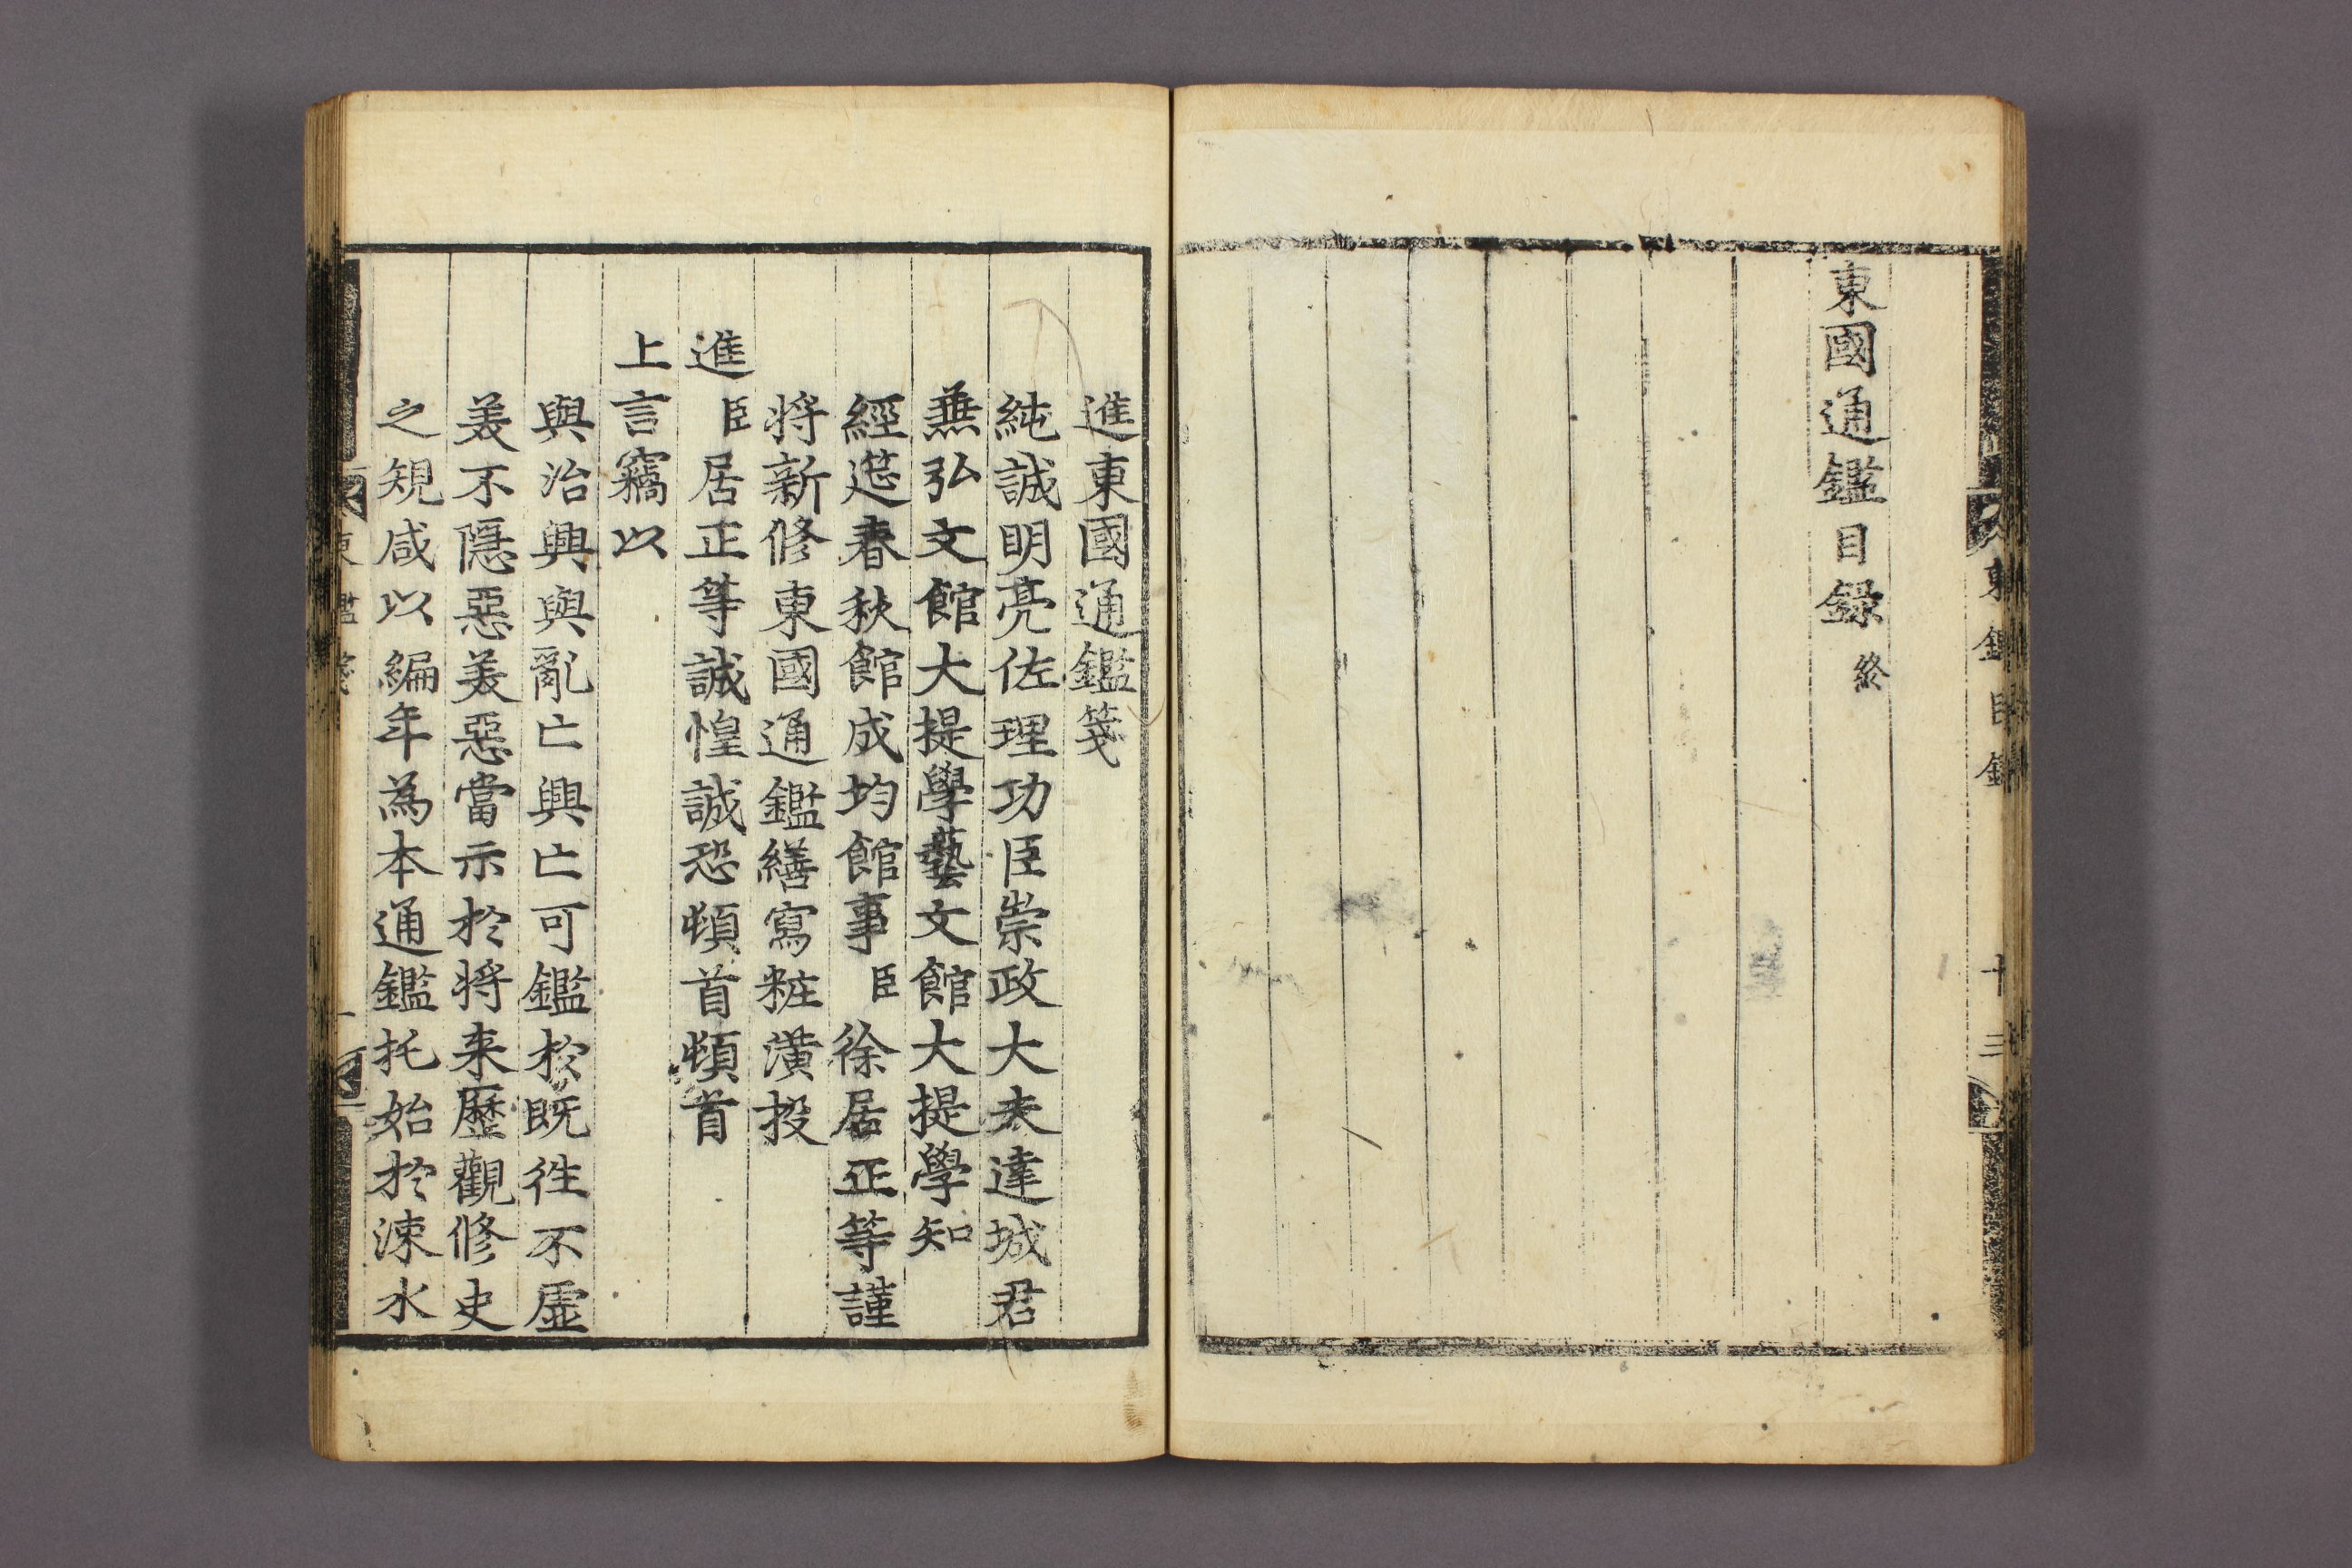 東國通鑑目録 終
進東國通鑑箋
純誠明亮佐理功臣崇政大夫達城君
兼弘文館大提學藝文館大提學知
經筵春秋館成均館事臣徐居正等謹
将新修東國通鑑繕寫粧潢投
進臣居正等誠惶誠恐頓首頓首
上言竊以
與治興與亂亡興亡可鑑於既徃不虛
美不隱惡美惡當示於将来歷觀修史
之規咸以編年為本通鑑托始於涑水